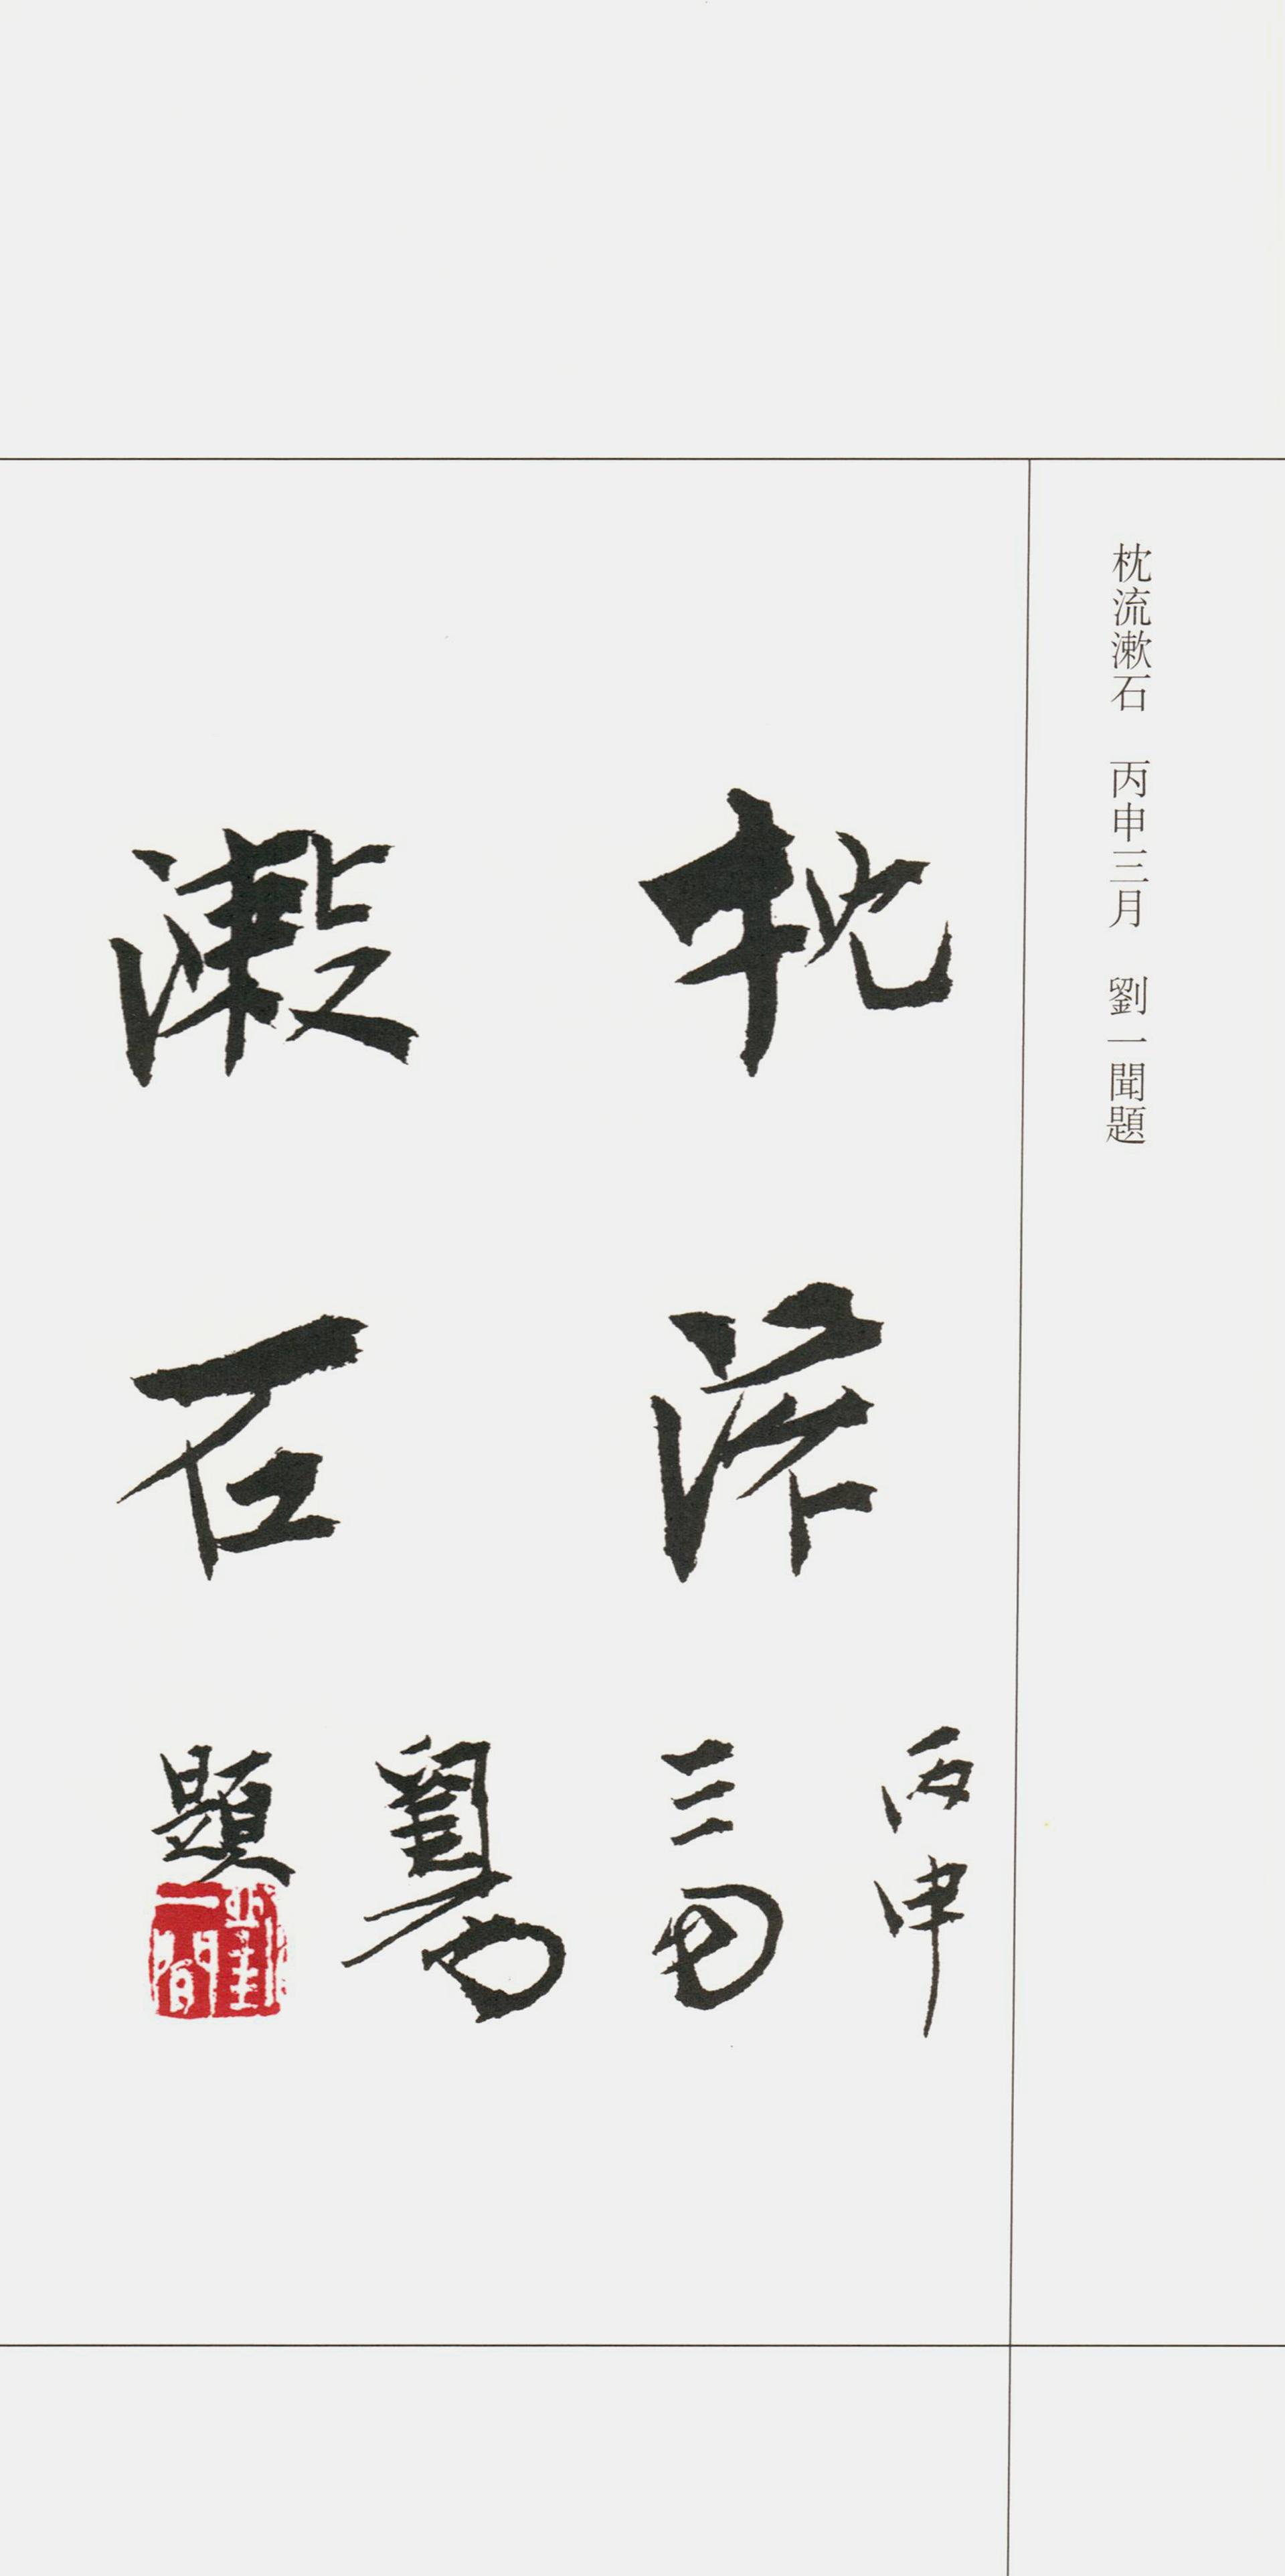 枕流漱石　丙申三月　劉一聞題
枕流
漱石
丙申
三月
劉一聞
題
劉一聞